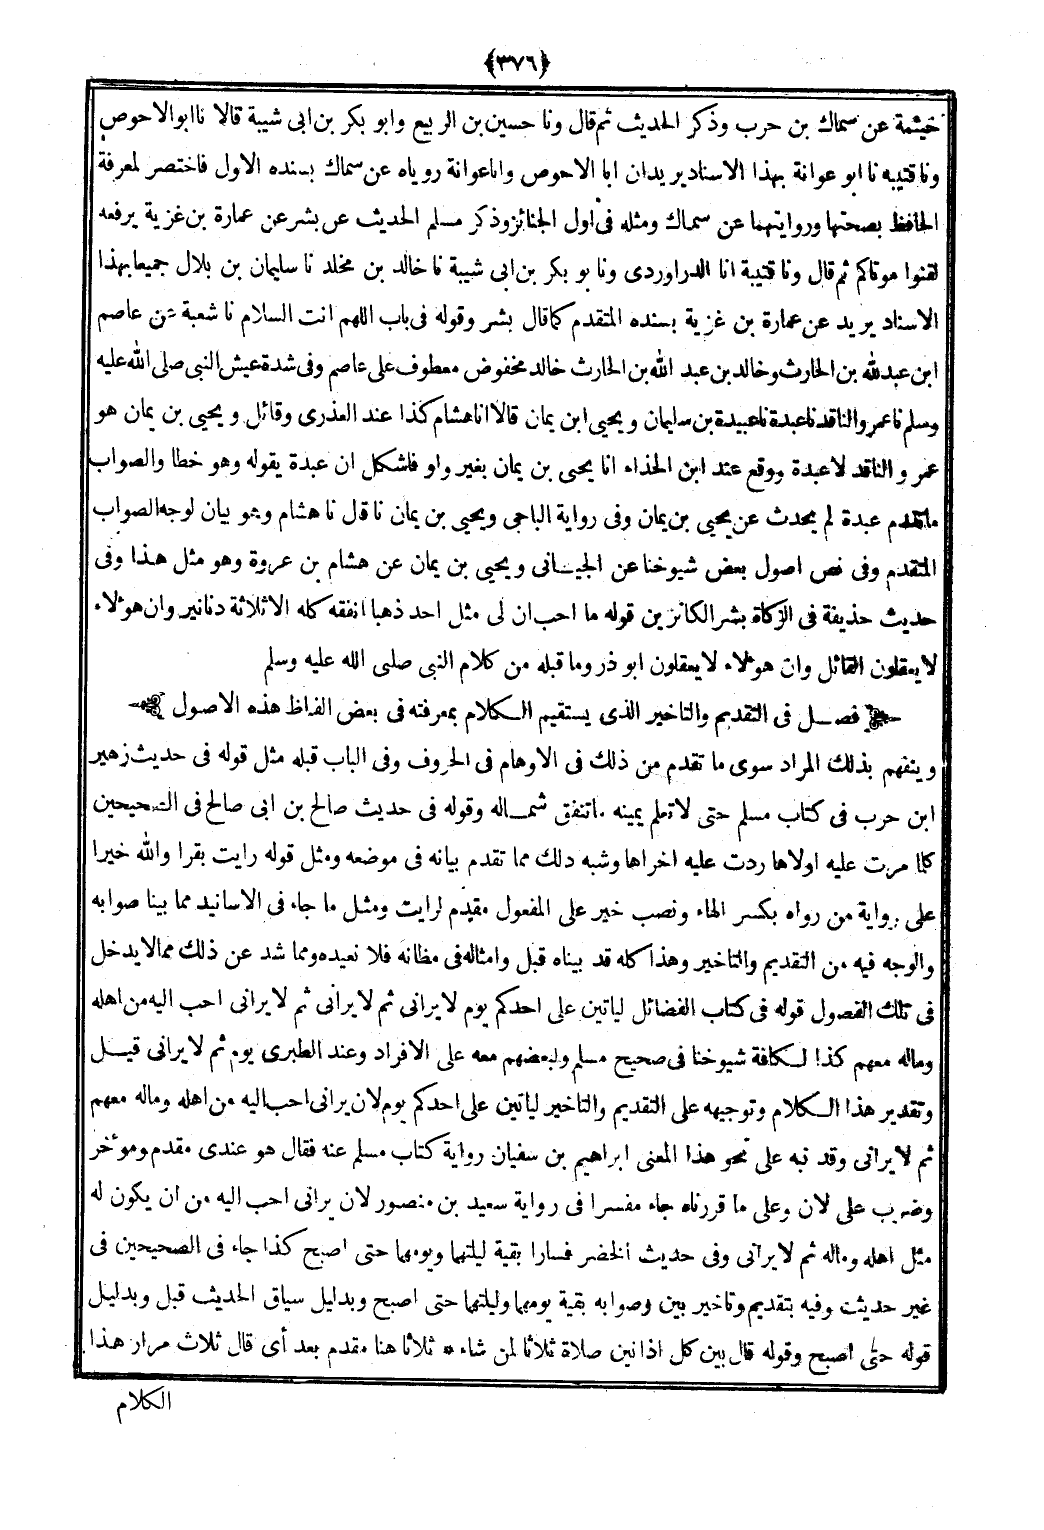 ﴿٣٧٦﴾
خيثمة عن سماك بن حرب وذكر الحديث ثم قال ونا حسين بن الربيع وابو بكر بن ابى شيبة قالا نا ابوالاحوص
ونا قتيبه نا ابو عوانة بهذا الاسناد يريد ان ابا الاحوص واباعوانة روياه عن سماك بسنده الاول فاختصر لمعرفة
الحافظ بصحتها وروايتهما عن سماك ومثله فى اول الجنائز وذكر مسلم الحديث عن بشر عن عمارة بن غزية يرفعه
لقنوا موتاكم ثم قال ونا قتيبة انا الدراوردى ونا بو بكر بن ابى شيبة نا خالد بن مخلد نا سليمان بن بلال جميعا بهذا
الاسناد يريد عن عمارة بن غزية بسنده المتقدم كما قال بشر وقوله فى باب اللهم انت السلام نا شعبة عن عاصم
ابن عبدلله بن الحارث وخالد بن عبد الله بن الحارث خالد مخفوض معطوف على عاصم وفى شدة عيش النبى صلى الله عليه
وسلم نا عمرو الناقد نا عبدة نا عبيدة بن سليمان و يحيى ابن يمان قالا انا هشام كذا عند العذرى وقائل و يحيى بن يمان هو
عمر و الناقد لا عبدة ووقع عند ابن الحذاء انا يحيى بن يمان بغير واو فاشكل ان عبدة يقوله وهو خطا والصواب
ماتقدم عبدة لم يحدث عن يحيى بن يمان وفى رواية الباجى ويحيى بن يمان نا قل نا هشام وهو بيان لوجه الصواب
المتقدم وفى نص اصول بعض شيوخنا عن الجيـانى و يحيى بن يمان عن هشام بن عروة وهو مثل هذا وفى
حديث حذيفة فى الزكاة بشر الكانزين قوله ما احب ان لى مثل احد ذهبا انفقه كله الاثلاثة دنانير وان هؤلاء
لا يعقلون القائل وان هؤلاء لا يعقلون ابو ذر وما قبله من كلام النبى صلى الله عليه وسلم
فصـل فى التقديم والتاخير الذى يستقيم الـكلام بمعرفته فى بعض الفاظ هذه الاصول
و يتفهم بذلك المراد سوى ما تقدم من ذلك فى الاوهام فى الحروف وفى الباب قبله مثل قوله فى حديث زهير
ابن حرب فى كتاب مسلم حتى لا تعلم يمينه ماتنفق شمـاله وقوله فى حديث صالح بن ابى صالح فى الصحيحين
كلما مرت عليه اولاها ردت عليه اخراها وشبه دلك مما تقدم بيانه فى موضعه ومثل قوله رايت بقرا والله خيرا
على رواية من رواه بكسر الهاء ونصب خير على المفعول مقدم لرايت ومثـل ما جاء فى الاسانيد مما بينا صوابه
والوجه فيه من التقديم والتاخير وهذا كله قد بيناه قبل وامثاله فى مظانه فلا نعيده ومما شد عن ذلك ممالايدخل
فى تلك الفصول قوله فى كتاب الفضائل لياتين على احدكم يوم لا يرانى ثم لا يرانى ثم لا يرانى احب اليه من اهله
وماله معهم كذا لـكافة شيوخنا فى صحيح مسلم ولبعضهم معه على الافراد وعند الطبرى يوم ثم لا يرانى قيـل
وتقدير هذا الـكلام وتوجيهه على التقديم والتاخير لياتين على احدكم يوم لان يرانى احب اليه من اهله وماله معهم
ثم لا يرانى وقد نبه على نحو هذا المعنى ابراهيم بن سفيان رواية كتاب مسلم عنه فقال هو عندى مقدم ومؤخر
وضرب على لان وعلى ما قررناه جاء مفسرا فى رواية سعيد بن منصور لان يرانى احب اليه من ان يكون له
مثل اهله وماله ثم لا يرانى وفى حديث الخضر فسارا بقية ليلتهما ويومهما حتى اصبح كذا جاء فى الصحيحين فى
غير حديث وفيه بتقديم وتاخير بين وصوابه بقية يومهما وليلتهما حتى اصبح وبدليل سياق الحديث قبل وبدليل
قوله حتى اصبح وقوله قال بين كل اذانين صلاة ثلاثا لمن شاء * ثلاثا هنا مقدم بعد أى قال ثلاث مرار هذا
الكلام